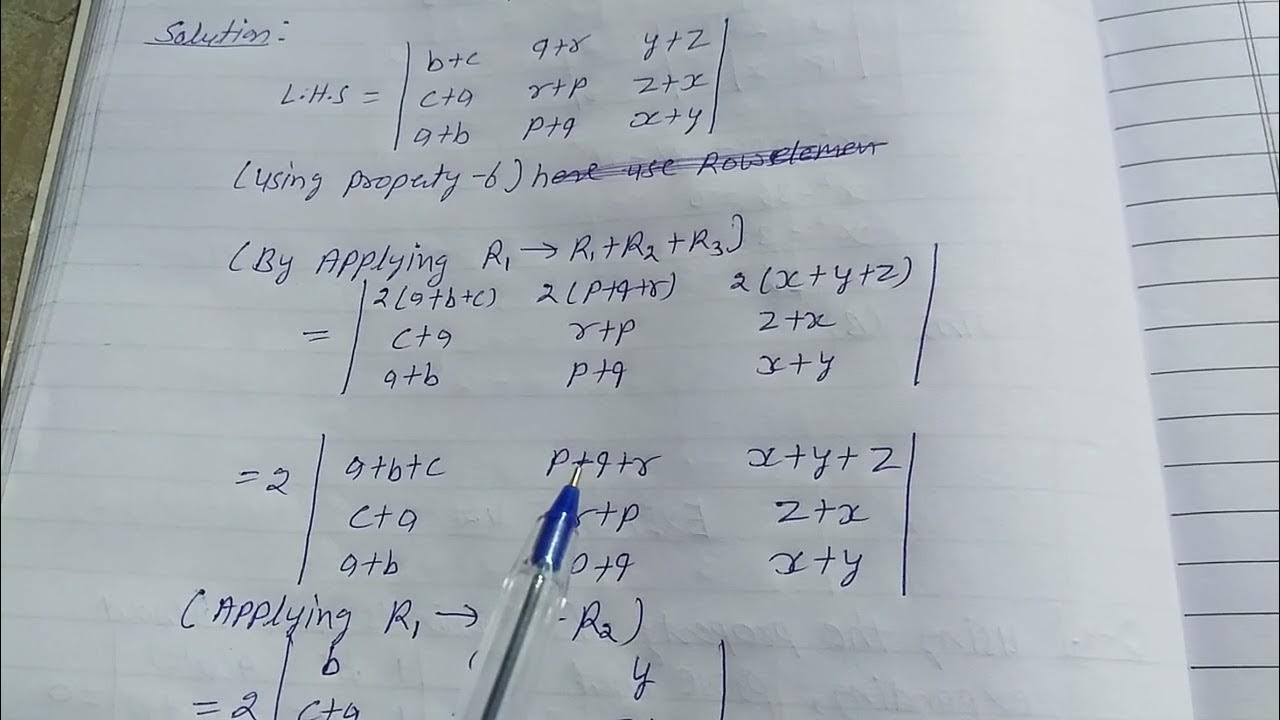 Solution:
b+c q+r y+z
L.H.S = c+a r+p z+x
a+b p+q x+y
(using property-6) here use Row elemen
(By Applying R₁ → R₁+R₂+R₃)
2(a+b+c) 2(p+q+r) 2(x+y+z)
= c+a r+p z+x
a+b p+q x+y
=2 a+b+c p+q+r x+y+z
c+a r+p z+x
a+b p+q x+y
(Applying R₁ → -R₂)
b y
=2 c+a